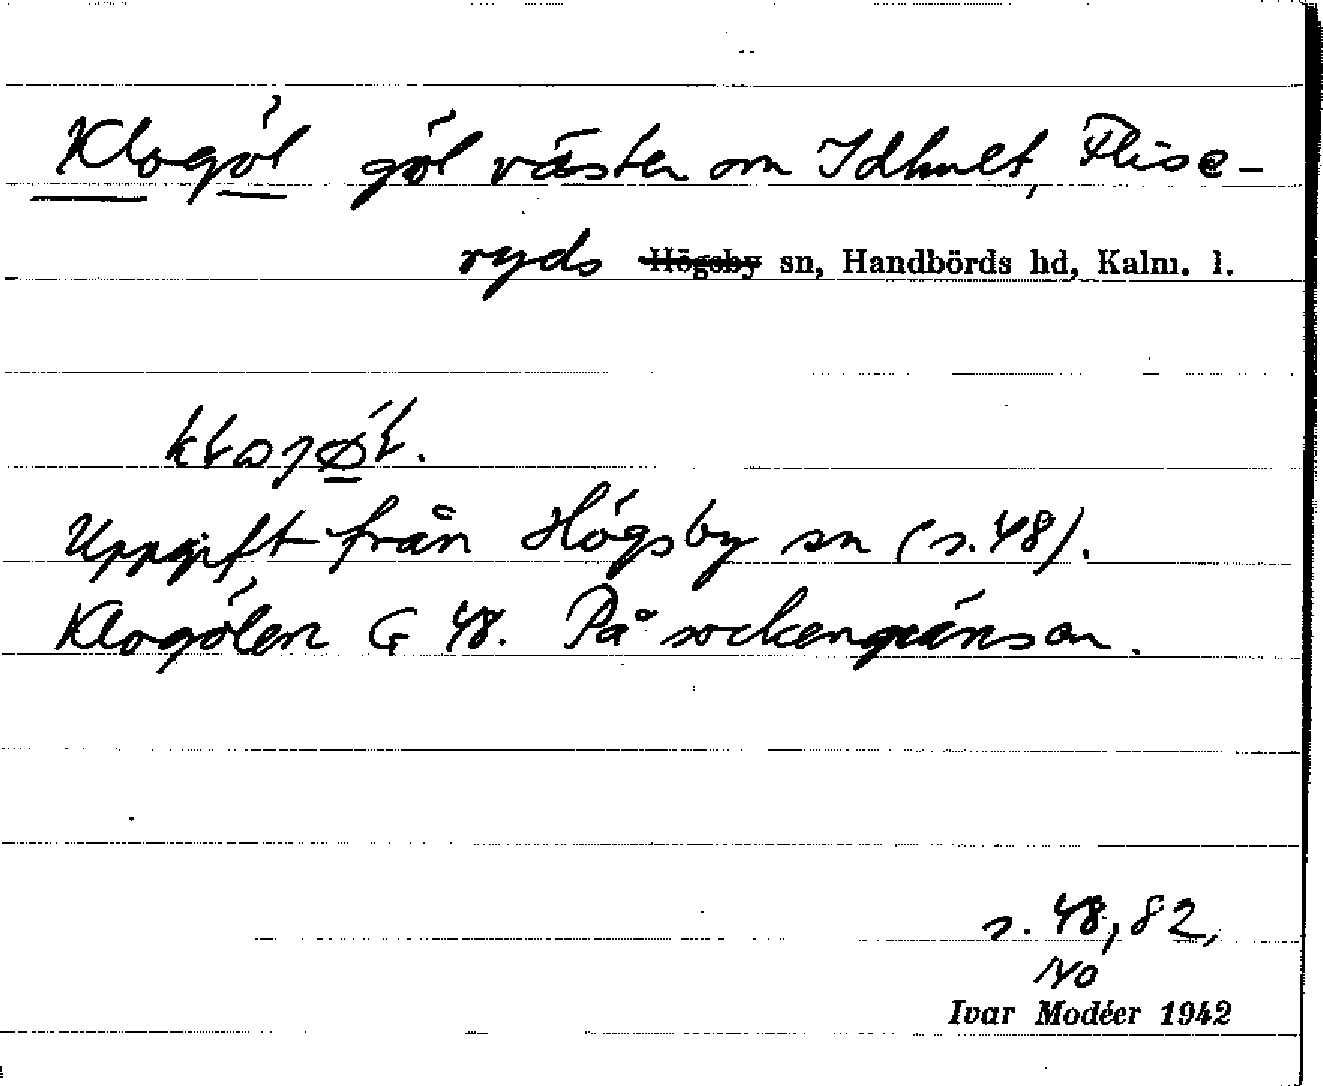 Klogöl göl väster om Idhult, Flise-
ryds Högsby sn, Handbörds hd, Kalm. l.
Uppgift från Högsby sn (s. 48).
Klogölen G 48. På sockengränsen.
s. 48, 82,
Ivar Modéer 1942